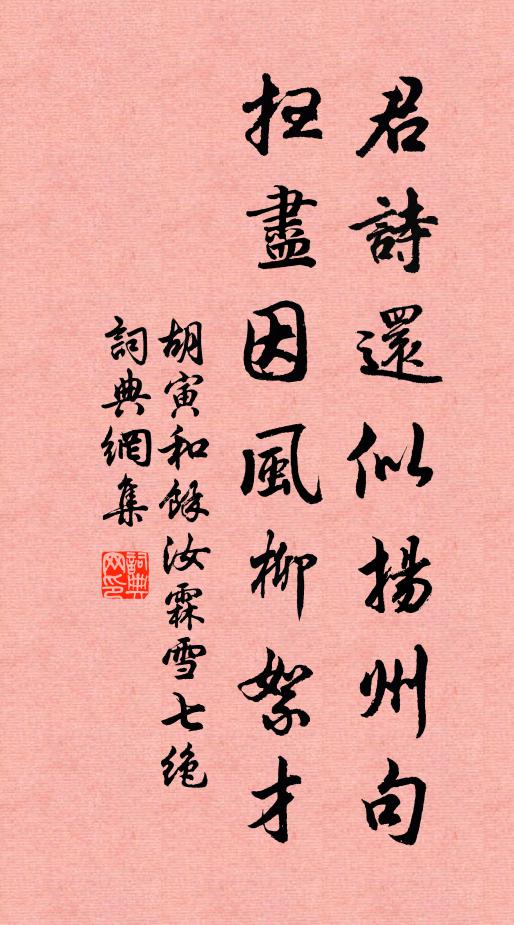 君詩還似揚州句
扫盡因風柳絮才
胡寅和餘汝霖雪七绝
詞典網集
詞典網印